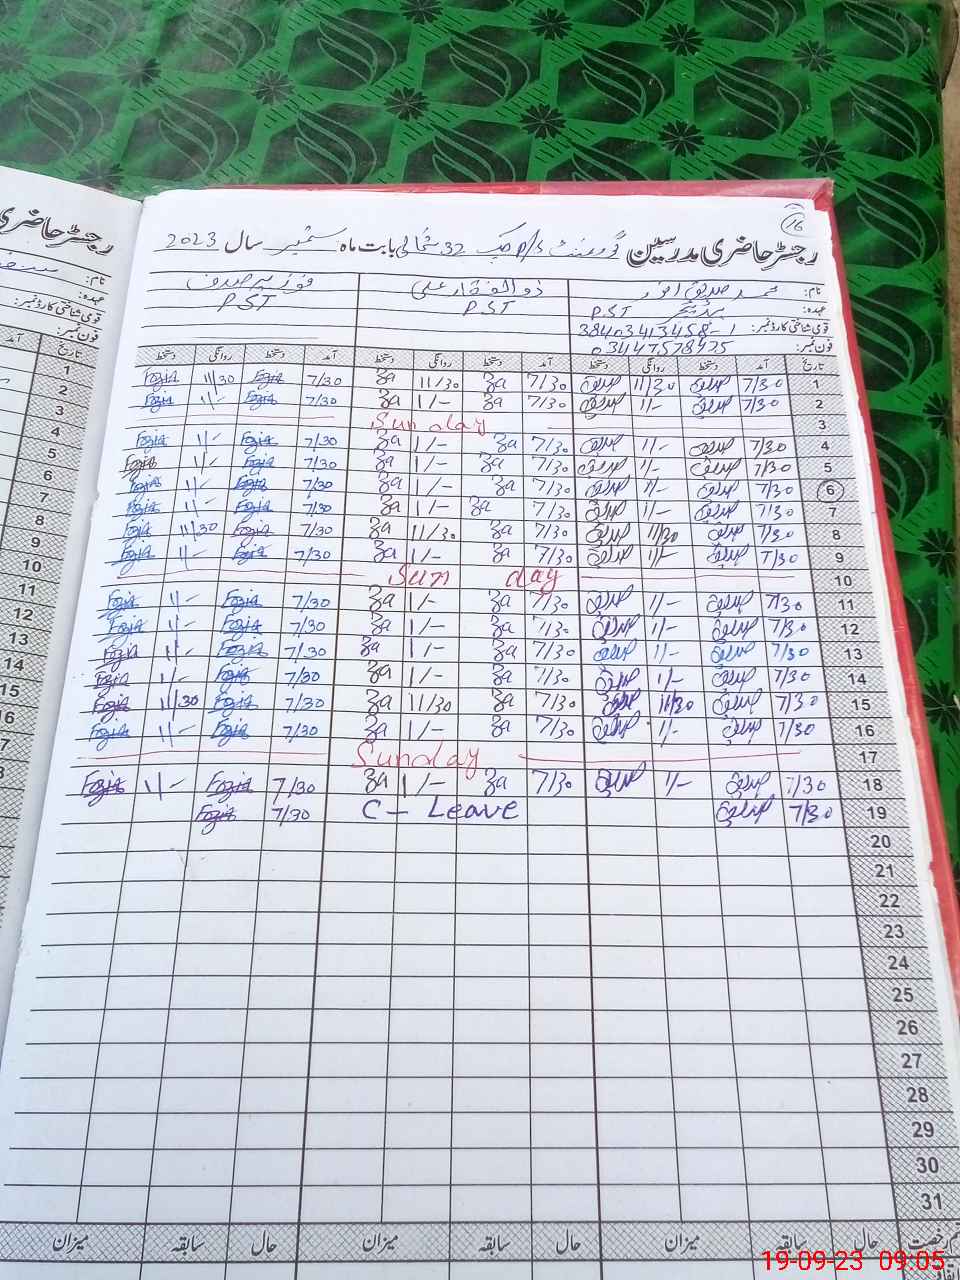 16
رجسٹر حاضری مدرسین گورنمنٹ P/S چک 32 شمالی بابت ماہ ستمبر سال 2023
نام: محمد صدیق انور ذوالفقار علی فوزیہ صدف
عہدہ: ہیڈ ٹیچر P.ST P.ST P.ST
قومی شناختی کارڈ نمبر: 38403413458-1
فون نمبر: 03447578975
تاریخ آمد دستخط روانگی دستخط آمد دستخط روانگی دستخط آمد دستخط روانگی دستخط
1 7/30 صدیق 11/30 صدیق 7/30 Za 11/30 Za 7/30 Fozia 11/30 Fozia
2 7/30 صدیق 1/- صدیق 7/30 Za 1/- Za 7/30 Fozia 1/- Fozia
3 Sunday
4 7/30 صدیق 1/- صدیق 7/30 Za 1/- Za 7/30 Fozia 1/- Fozia
5 7/30 صدیق 1/- صدیق 7/30 Za 1/- Za 7/30 Fozia 1/- Fozia
6 7/30 صدیق 1/- صدیق 7/30 Za 1/- Za 7/30 Fozia 1/- Fozia
7 7/30 صدیق 1/- صدیق 7/30 Za 1/- Za 7/30 Fozia 1/- Fozia
8 7/30 صدیق 11/30 صدیق 7/30 Za 11/30 Za 7/30 Fozia 11/30 Fozia
9 7/30 صدیق 1/- صدیق 7/30 Za 1/- Za 7/30 Fozia 1/- Fozia
10 Sun day
11 7/30 صدیق 1/- صدیق 7/30 Za 1/- Za 7/30 Fozia 1/- Fozia
12 7/30 صدیق 1/- صدیق 7/30 Za 1/- Za 7/30 Fozia 1/- Fozia
13 7/30 صدیق 1/- صدیق 7/30 Za 1/- Za 7/30 Fozia 1/- Fozia
14 7/30 صدیق 1/- صدیق 7/30 Za 1/- Za 7/30 Fozia 1/- Fozia
15 7/30 صدیق 11/30 صدیق 7/30 Za 11/30 Za 7/30 Fozia 11/30 Fozia
16 7/30 صدیق 1/- صدیق 7/30 Za 1/- Za 7/30 Fozia 1/- Fozia
17 Sunday
18 7/30 صدیق 1/- صدیق 7/30 Za 1/- Za 7/30 Fozia 1/- Fozia
19 7/30 صدیق C - Leave 7/30 Fozia
20
21
22
23
24
25
26
27
28
29
30
31
رخصت سابقہ میزان حال سابقہ میزان حال سابقہ میزان
اتفاقیہ
رجسٹر حاضری
نام:
عہدہ:
قومی شناختی کارڈ نمبر:
فون نمبر:
تاریخ آمد
1
2
3
4
5
6
7
8
9
10
11
12
13
14
15
16
19-09-23 09:05